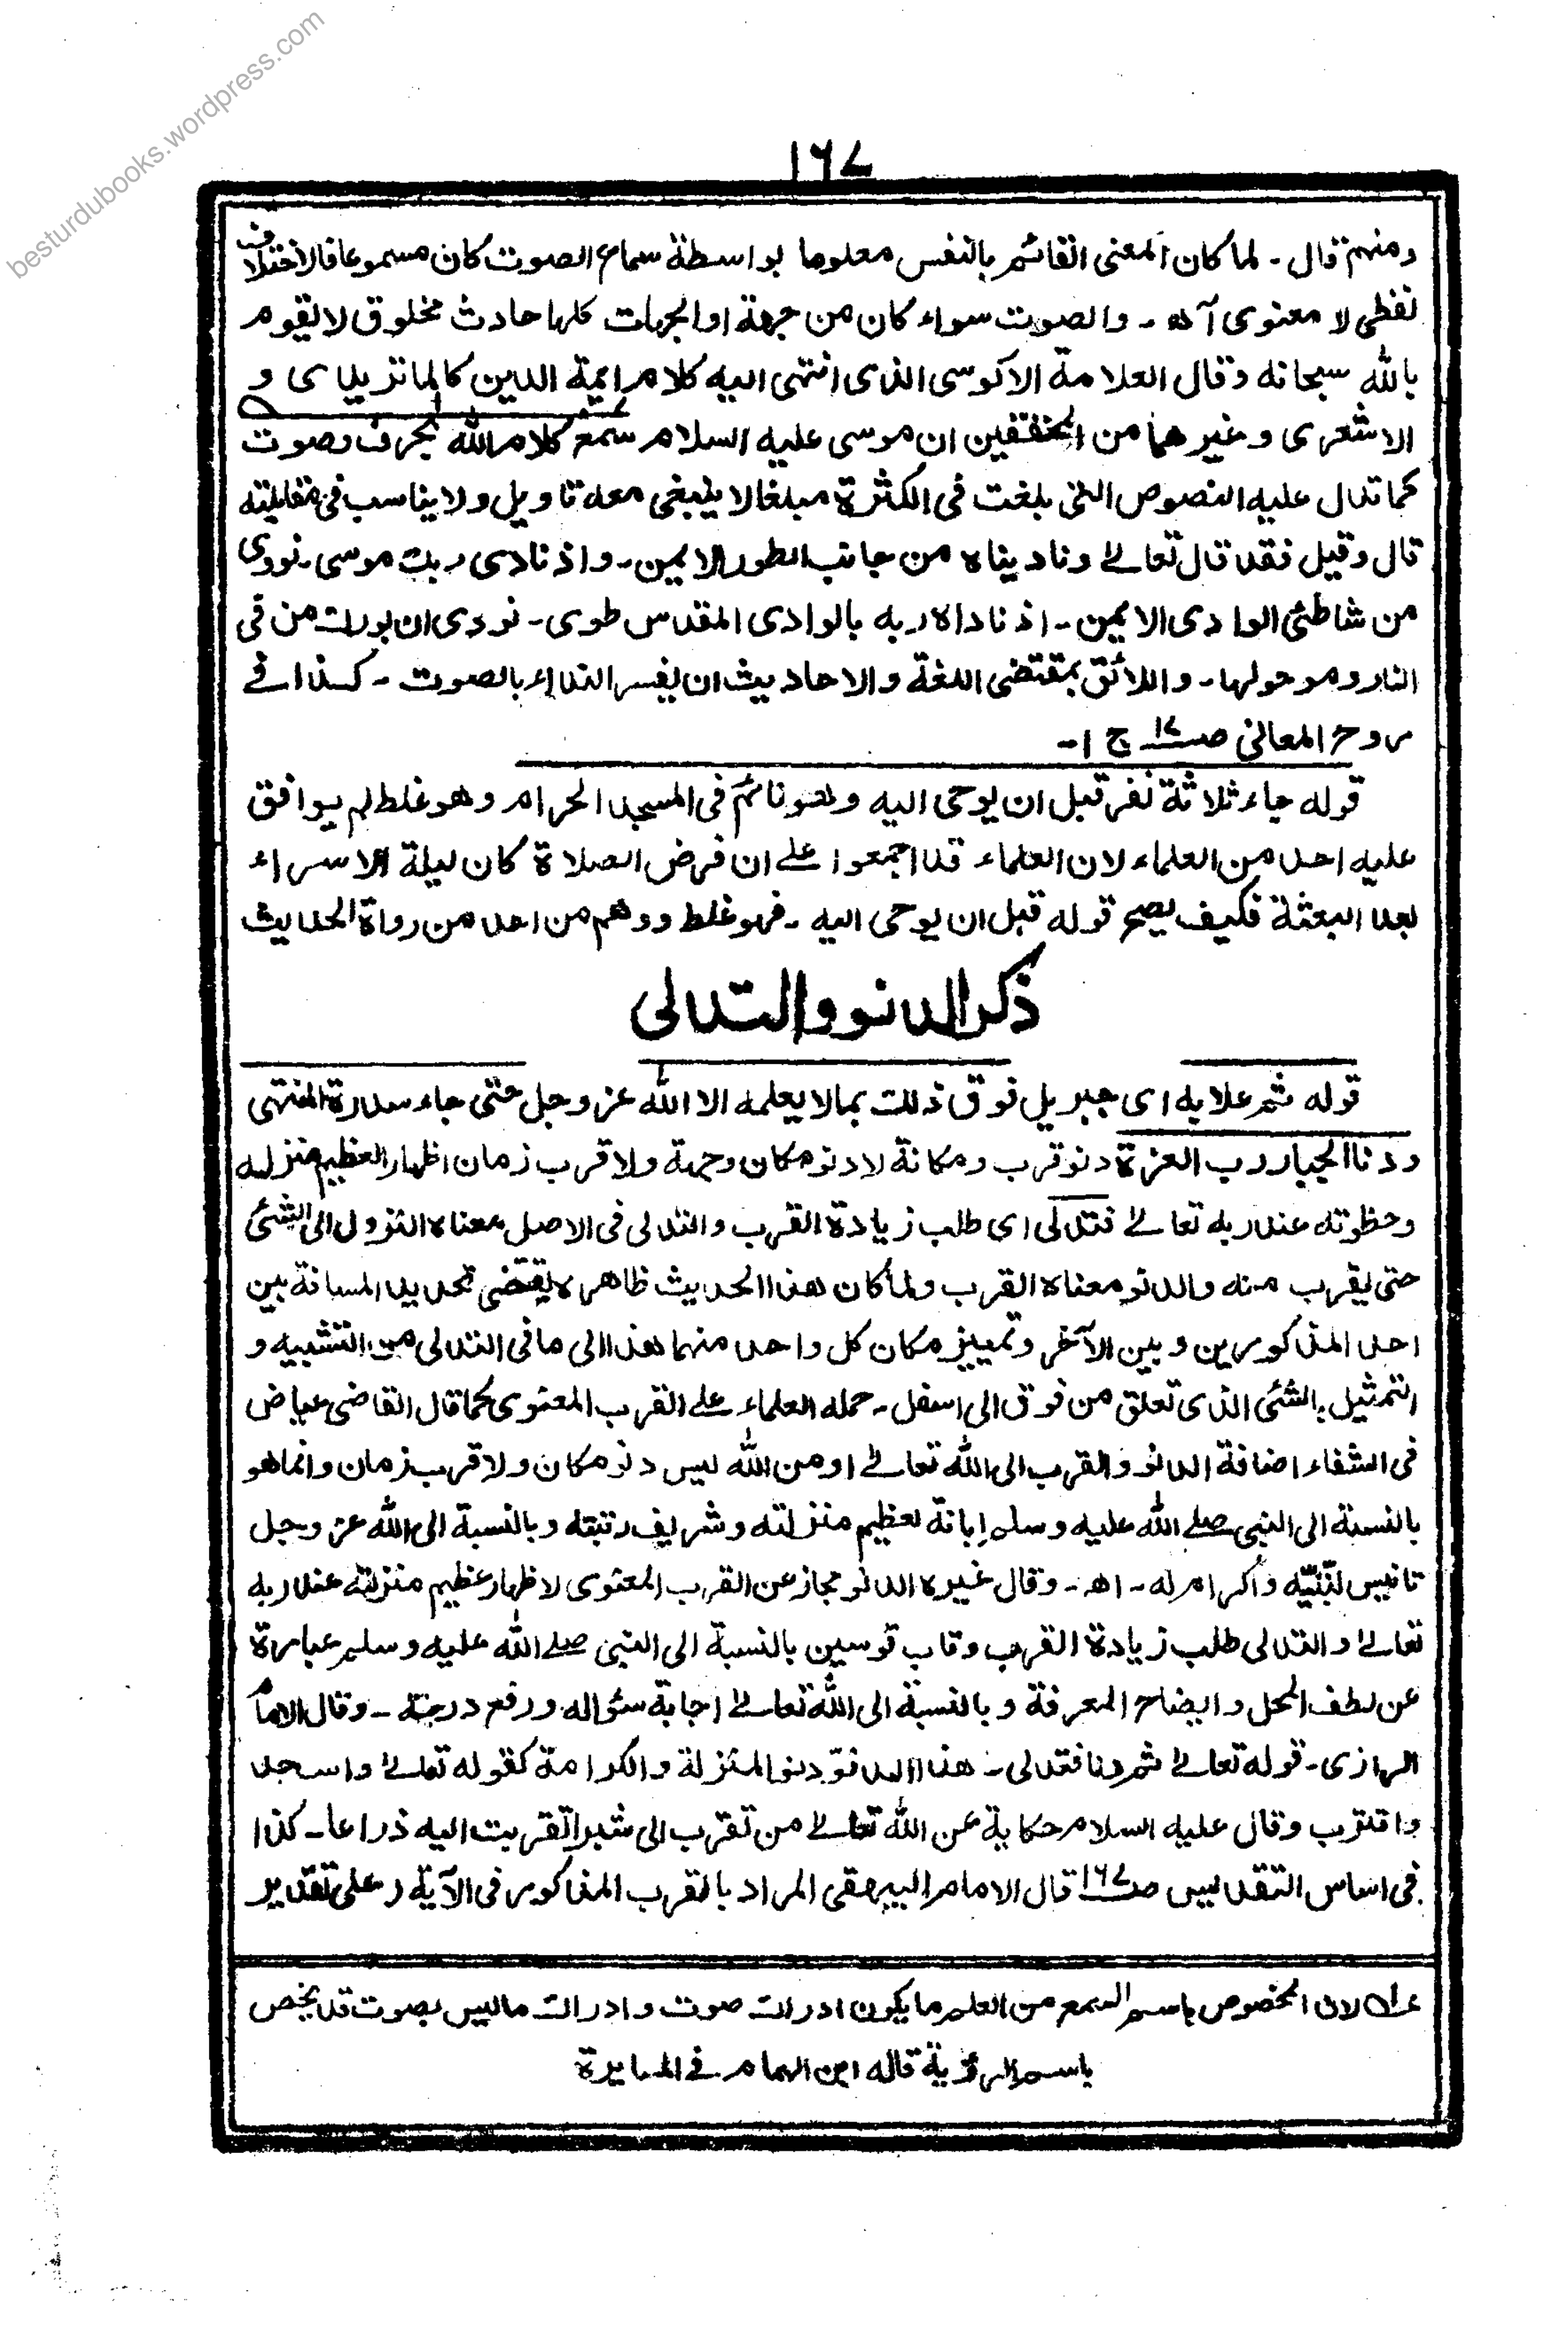 besturdubooks.wordpress.com
١٦٧
ومنهم قال ـ لما كان المعنى القائم بالنفس معلوما بواسطة سماع الصوت كان مسموعا فالاختلاف
لفظى لا معنوى آه ـ والصوت سواء كان من جهة او الجهات كلها حادث مخلوق لا يقوم
بالله سبحانه وقال العلامة الاكوسى الذى انتهى اليه كلام ايمة الدين كالماتريدى و
الاشعرى وغيرهما من المحققين ان موسى عليه السلام سمع كلام الله بحرف وصوت
كما تدل عليه النصوص التى بلغت فى الكثرة مبلغا لا ينبغى معه تاويل ولا يناسب فى مقابلته
قال وقيل فقد قال تعالى وناديناه من جانب الطور الايمن ـ واذ نادى ربك موسى ـ نودى
من شاطئ الوادى الايمن ـ اذ ناداه ربه بالوادى المقدس طوى ـ نودى ان بورك من فى
النار ومن حولها ـ واللائق بمقتضى اللغة والاحاديث ان يفسر النداء بالصوت ـ كذا فى
روح المعانى صـ ١٧ ج ١ ـ
قوله جاء ثلاثة نفر قبل ان يوحى اليه وهو نائم فى المسجد الحرام وهو غلط لم يوافق
عليه احد من العلماء لان العلماء قد اجمعوا على ان فرض الصلاة كان ليلة الاسراء
بعد البعثة فكيف يصح قوله قبل ان يوحى اليه ـ فهو غلط ووهم من احد من رواة الحديث
ذكر الدنو والتدلى
قوله ثم علا به اى جبريل فوق ذلك بما لا يعلمه الا الله عز وجل حتى جاء سدرة المنتهى
ودنا الجبار رب العزة دنو قرب ومكانة لا دنو مكان وجهة ولا قرب زمان اظهار العظيم منزلته
وحظوته عند ربه تعالى فتدلى اى طلب زيادة القرب والتدلى فى الاصل معناه النزول الى الشئ
حتى يقرب منه والدنو معناه القرب ولما كان هذا الحديث ظاهره يقتضى تحديد المسافة بين
احد المذكورين وبين الآخر وتمييز مكان كل واحد منهما هذا الى ما فى التدلى من التشبيه و
التمثيل بالشئ الذى تعلق من فوق الى اسفل ـ حمله العلماء على القرب المعنوى كما قال القاضى عياض
فى الشفاء اضافة الدنو والقرب الى الله تعالى او من الله ليس دنو مكان ولا قرب زمان وانما هو
بالنسبة الى النبى صلى الله عليه وسلم إبانة لعظيم منزلته وشريف رتبته وبالنسبة الى الله عز وجل
تانيس لنبيّه واكرام له ـ اهـ ـ وقال غيره الدنو مجاز عن القرب المعنوى لاظهار عظيم منزلته عند ربه
تعالى والتدلى طلب زيادة القرب وقاب قوسين بالنسبة الى النبى صلى الله عليه وسلم عبارة
عن لطف المحل وايضاح المعرفة وبالنسبة الى الله تعالى اجابة سئواله ورفع درجته ـ وقال الامام
الرازى ـ قوله تعالى ثم دنا فتدلى ـ هذا الدنوّ دنو المنزلة والكرامة كقوله تعالى واسجد
واقترب وقال عليه السلام حكاية عن الله تعالى من تقرب الى شبرا تقربت اليه ذراعا ـ كذا
فى اساس التقديس صـ ١٦٧ قال الامام البيهقى المراد بالقرب المذكور فى الآية (على تقدير
عـه لان المخصوص باسم السمع من العلم ما يكون ادراك صوت وادراك ما ليس بصوت قد يخص
باسم الرؤية قاله ابن الهمام فى المسايرة